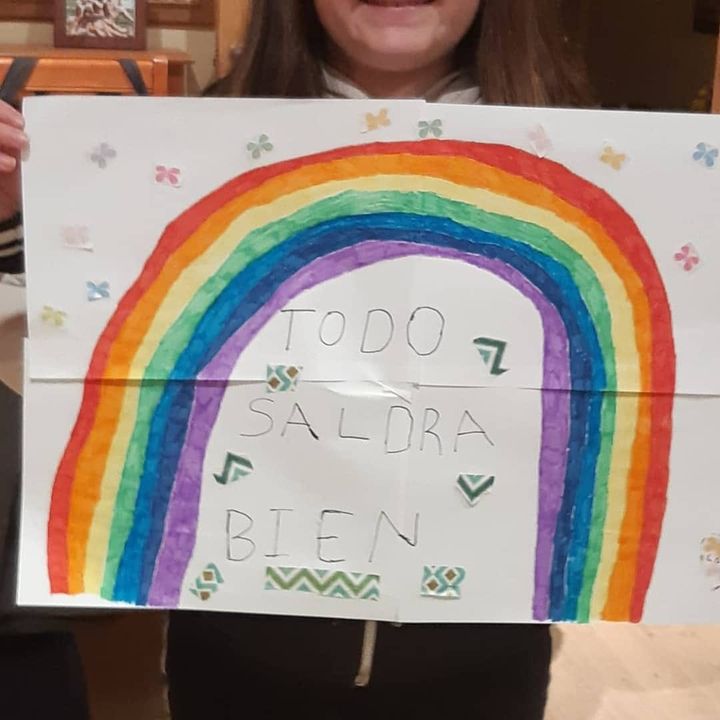 TODO
SALDRA
BIEN